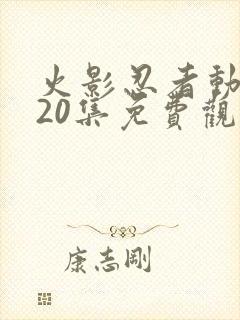 火影忍者動
20集免費觀
康志剛